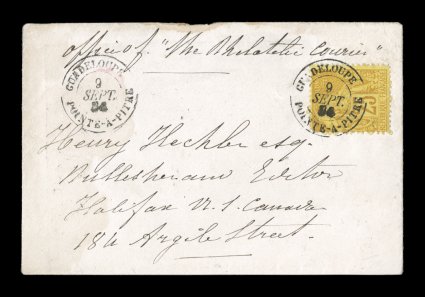 Office of "The Philatelic Courier"
GUADELOUPE
9
SEPT.
84
POINTE-A-PITRE
GUADELOUPE
9
SEPT.
84
POINTE-A-PITRE
25
Henry Hechler esq.
Editor
Halifax N.S. Canada
184 Argile Street.